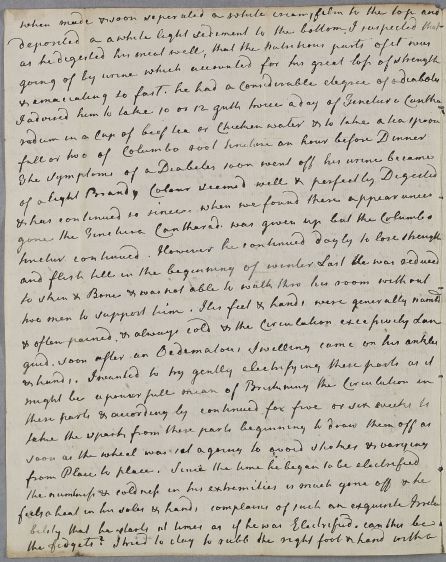 when made & soon seperated a white creamy film to the top and
deposited a a white light sediment to the bottom, I suspected that
as he digested his meat well, that the Nutritious parts of it was
going of by urine which accounted for his great loss of strength
& emaciating so fast. he had a considerable degree of a diabetes
I advised him to take 10 or 12 gutts twice a day of Tinctura Cantha
radum in a Cup of beef tea or Chicken water & to take a tea spoon
full or two of Columbo root tincture an hour before Dinner
The Symptoms of a Diabetes soon went off his urine became
of a light Brandy Colour seemed well & perfectly Digested
& has continued so since. when we found these appearances
gone the Tinctura Cantharad. was given up but the Columbo
tinctur continued. However he continued dayly to lose strength
and flesh till in the beginning of winter last He was reduced
to skin & Bone & was not able to walk thro his room without
two men to support him. His feet & hands were generally numb
& often pained, & always cold & the Circulation excessively Lan
guid. soon after an Oedematous Swelling came on his ankles
& hands, I wanted to try gently electrifying these parts as it
might be a powerfull mean of Brisking the Circulation in
these parts & accordingly continued for five or six weeks to
take the sparks from these parts beginning to draw them off as
soon as the wheel was set agoing to avoid shocks & varying
from Place to place. Since the time he began to be electrified
the numbness & coldness in his extremities is much gone off & he
feels a heat in his soles & hands, complains of such an exquisite Irrita
bility that he starts at times as if he was Electrified. can this be
the fidgets? I tried to day to rubb the right foot & hand with a